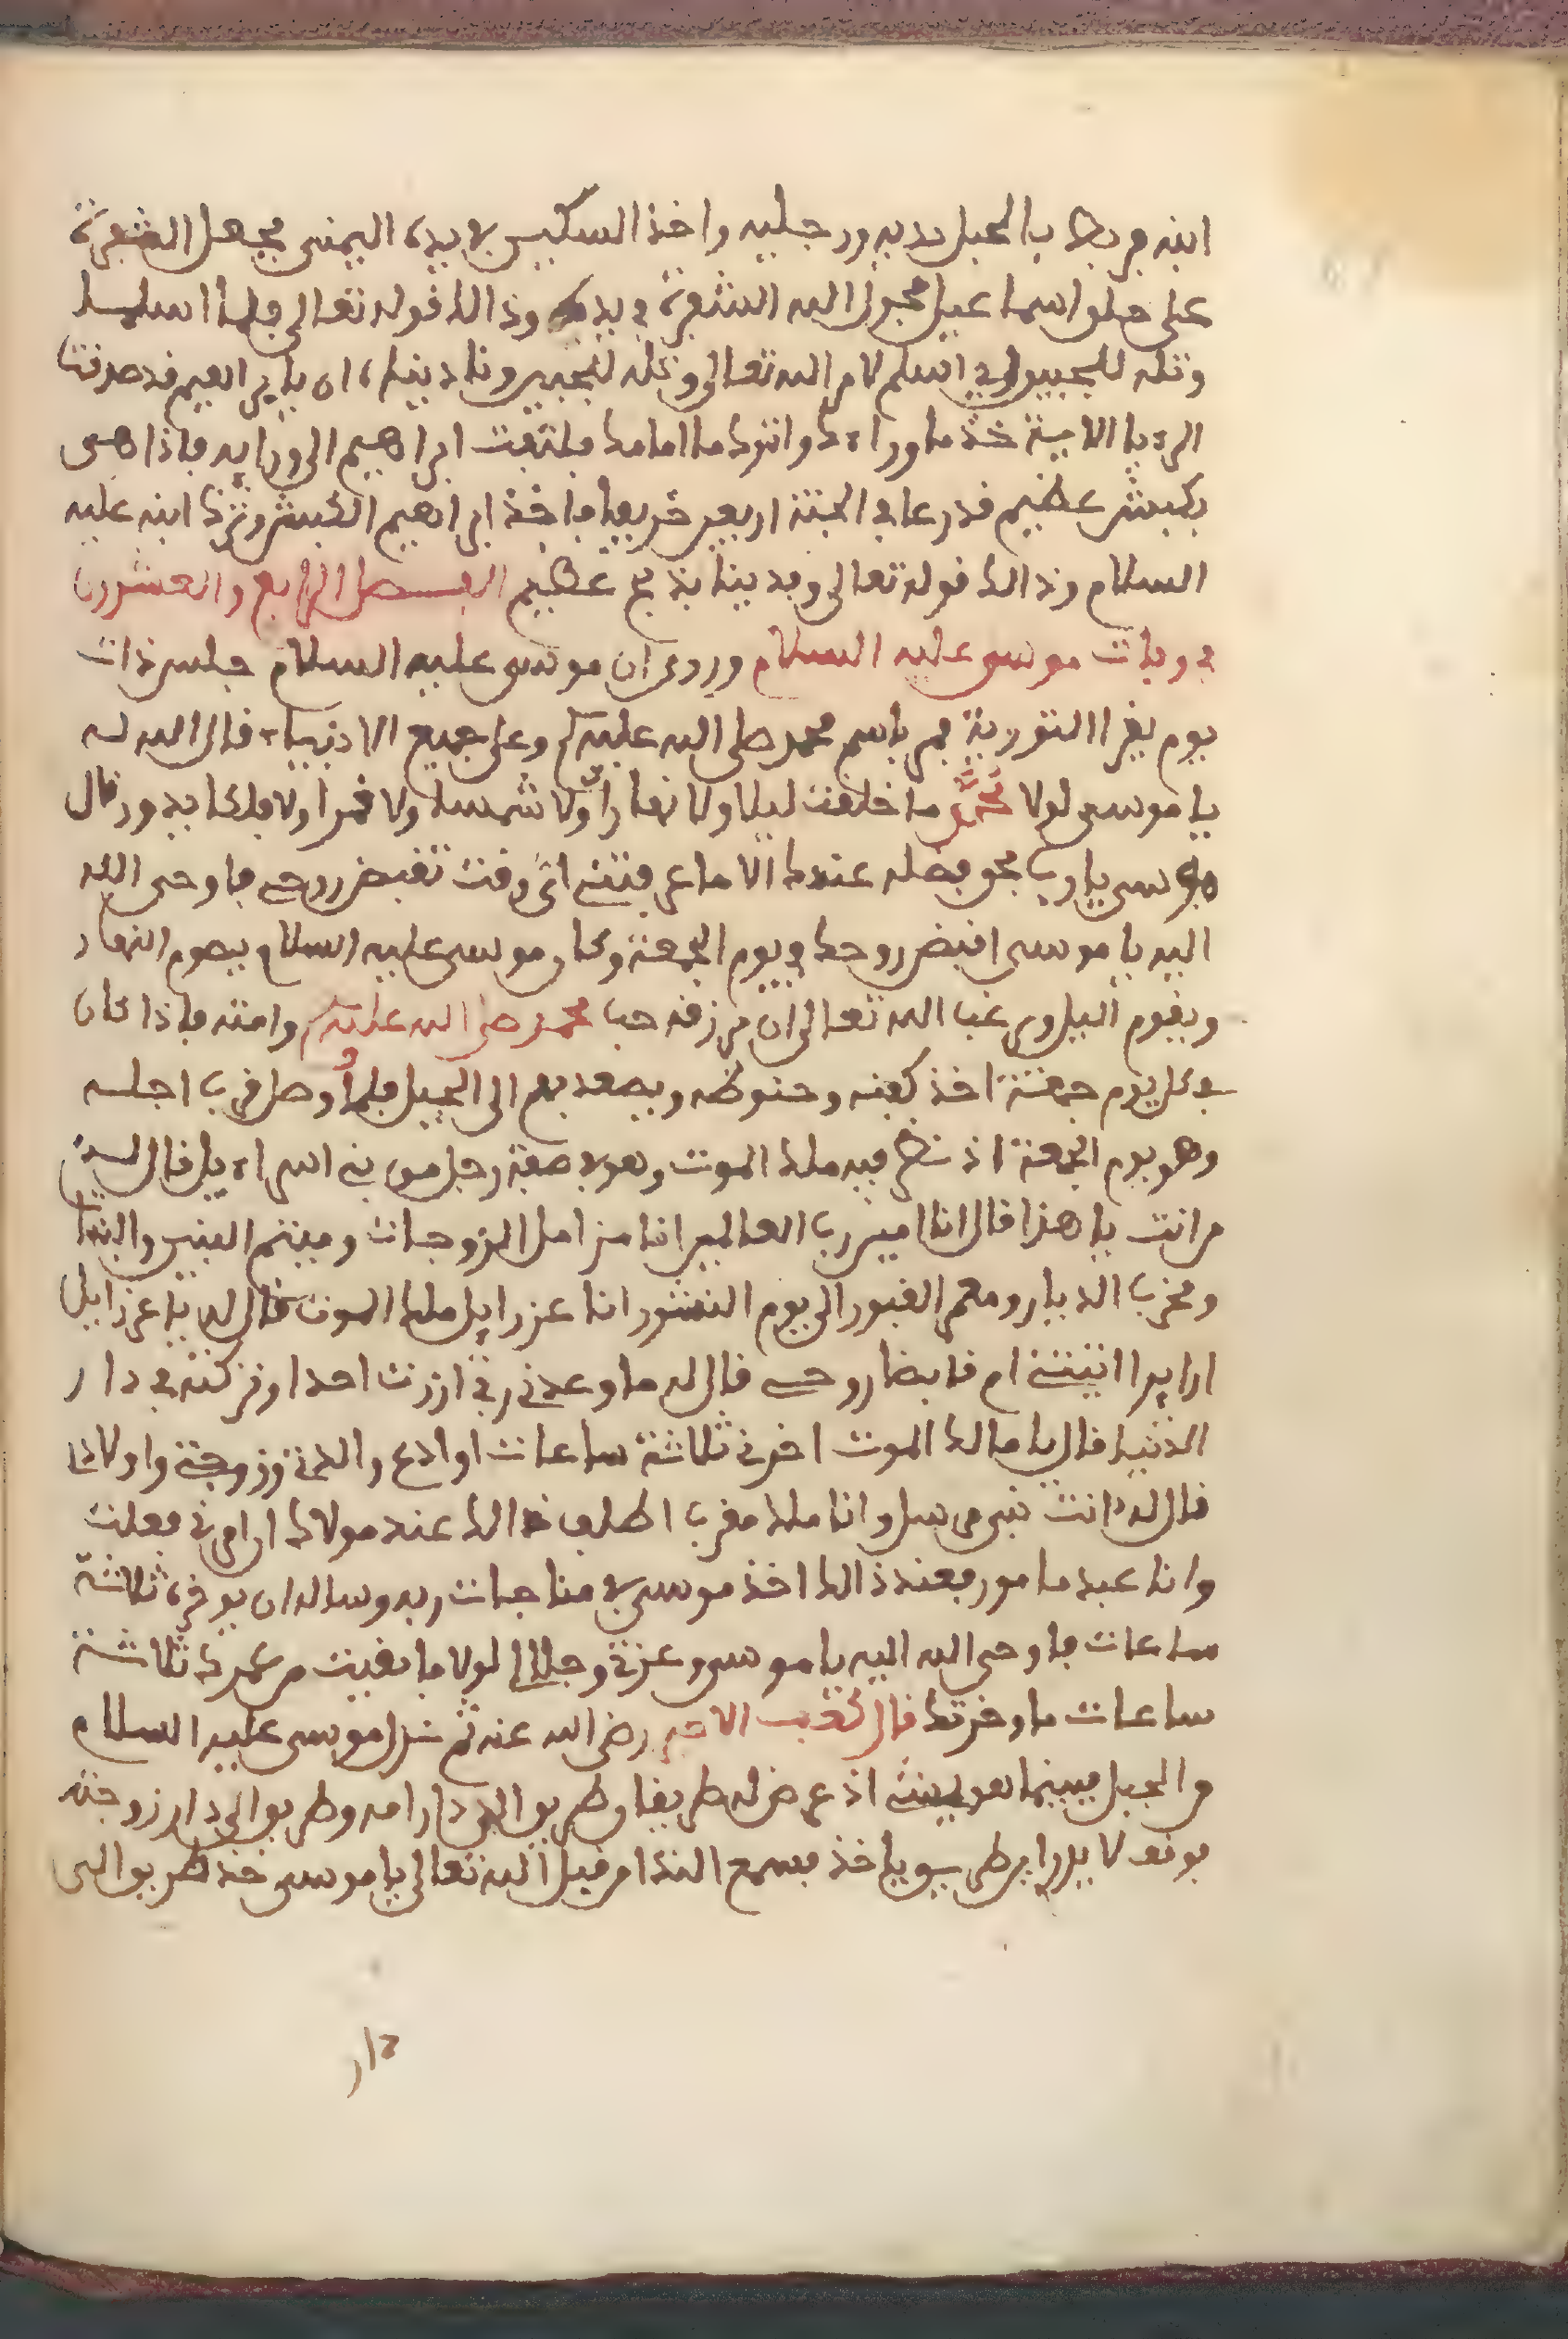 ابنه فربط بالحبل يديه ورجليه واخذ السكين في يده اليمنى فجعل الشفرة
على حلق اسماعيل فحول الله الشفرة في يده وذالك قوله تعالى فلما اسلما
وتله للجبين اي استسلم لامر الله تعالى وتله للجبين وناديناه ان يا ابراهيم قد صدقت
الرءيا الاية خذ ما وراءك واترك ما امامك فلتفت ابراهيم الى ورايه فاذا هى
بكبش عظيم قد رعا في الجنة اربعين خريفا فاخذ ابراهيم الكبش وترك ابنه عليه
السلام وذالك قوله تعالى وفديناه بذبح عظيم الفصل الرابع والعشرون
في وفات موسى عليه السلام وروي ان موسى عليه السلام جلس ذات
يوم يقرا التورية فمر باسم محمد صلى الله عليه وعلى جميع الانبياء قال الله له
يا موسى لولا محمد ما خلقت ليلا ولا نهارا ولا شمسا ولا قمرا ولا فلكا يدور قال
موسى يا رب بحق فضله عندك الا ما عرفتني اي وقت تقبض روحي فاوحى الله
اليه يا موسى اقبض روحك في يوم الجمعة وكان موسى عليه السلام يصوم النهار
ويقوم اليل ويرغب الله تعالى ان يرزقه حب محمد صلى الله عليه وامته فاذا كان
في كل يوم جمعة اخذ كفنه وحنوطه ويصعد بهم الى الجبل فلما وصل قرب اجله
وهو يوم الجمعة اذ شخص فيه ملك الموت وهو في صفة رجل من بني اسراءيل قال له
من انت يا هذا قال انا امين رب العالمين انا مرمل الزوجات وميتم البنين والبنات
ومخرب الديار ومعمر القبور الى يوم النشور انا عزرايل ملك الموت قال له يا عزرايل
ازايرا اتيتني ام قابضا روحي قال له ما وعدني ربي ازرت احدا وتركته في دار
الدنيا قال يا مالك الموت اخرني ثلاثة ساعات اوادع والدتي وزوجتي واولادي
قال له انت نبي مرسل وانا ملك مقرب اطلب ذالك عند مولاك ان امرني فعلت
وانا عبد مامور فعند ذالك اخذ موسى في مناجات ربه وساله ان يوخره ثلاثة
ساعات فاوحى الله اليه يا موسى وعزتي وجلالي لولا ما بقيت من عمرك ثلاثة
ساعات ما وخرتك قال كعب الاحبر رضى الله عنه ثم نزل موسى عليه السلام
من الجبل فبينما هو يمشي اذ عرض له طريقان طريق الى دار امه وطريق الى دار زوجته
فوقف لا يدر اين طريق ياخذ فسمع الندا من قبل الله تعالى يا موسى خذ طريق الى
دار